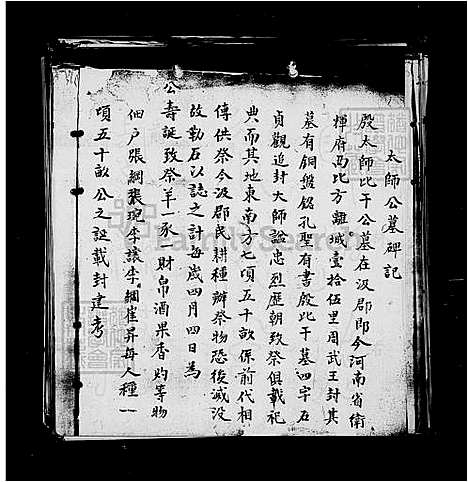 太師公墓碑記
殷太師比干公墓在汲郡即今河南省衛
輝府西北方離城壹拾伍里周武王封其
墓有銅盤銘孔聖有書殷比干墓四字石
貞觀追封太師謚忠烈歷朝致祭俱載祀
典而其地東南方七項五十畝係前代相
傳供祭今汲郡民耕種辦祭物恐後滅没
故勒石以誌之計每歲四月四日為
公壽誕致祭羊一豕一財帛酒果香灼等物
佃户張綱張琬李讓李綱崔昇每人種一
頃五十畝公之誕載封建考
FamilySearch